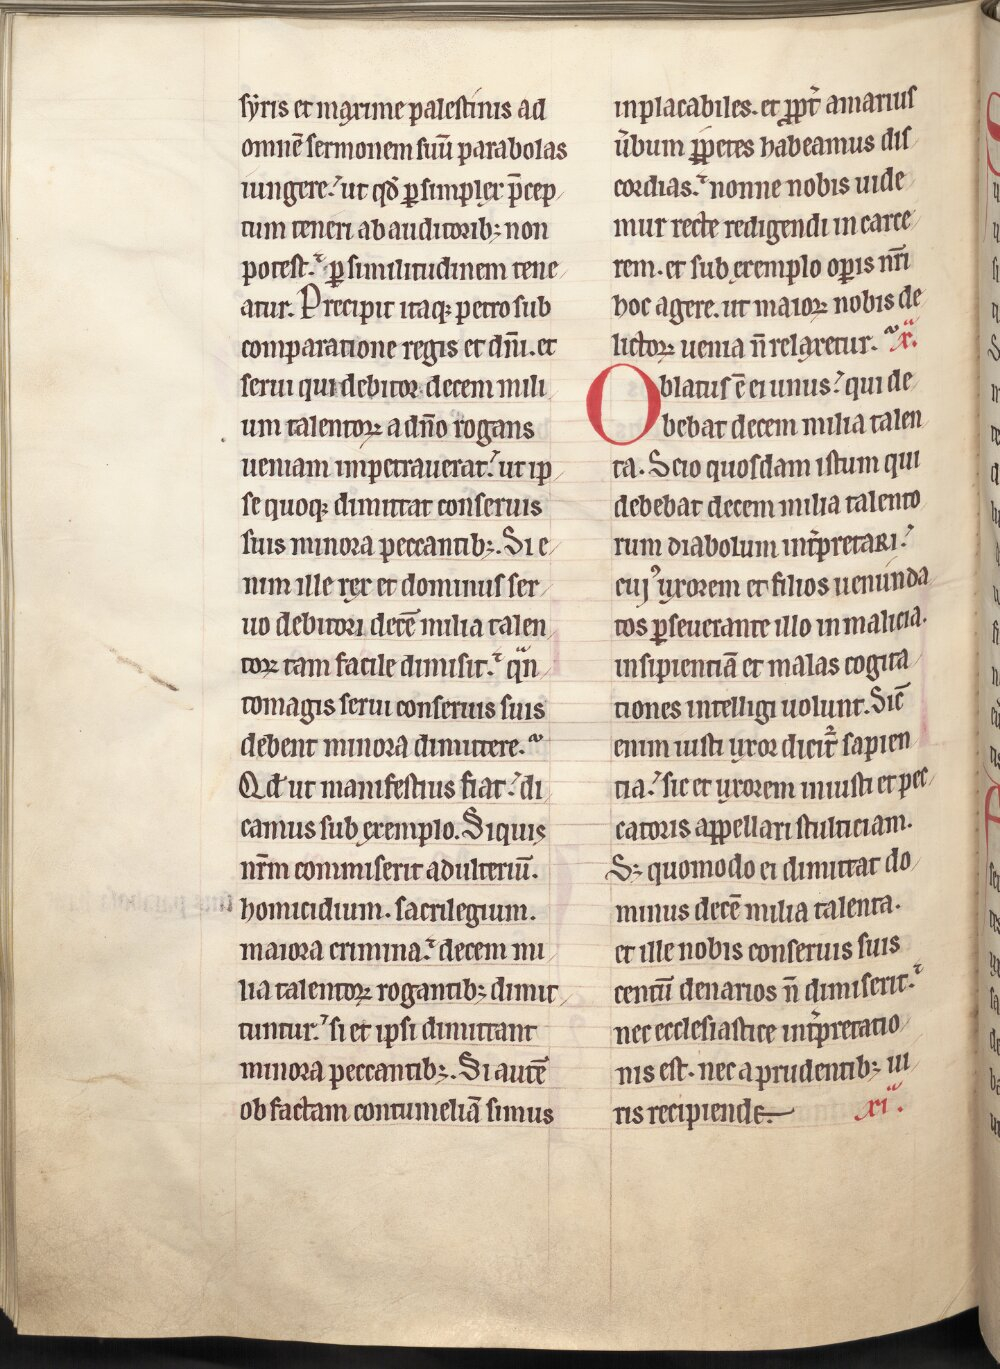 sẏris et maxime palestinis ad
omnē sermonem suū parabolas
iungere. ut qđ ꝑ simplex p̄cep
tum teneri ab auditorib; non
potest. ꝑ similitudinem tene
atur. Precipit itaq; petro sub
comparatione regis et dn̄i. et
serui qui debitor decem mili
um talentoꝝ a dn̄o rogans
ueniam impetrauerat. ut ip
se quoq; dimittat conseruis
suis minora peccantib;. Si e
nim ille rex et dominus ser
uo debitori decē milia talen
toꝝ tam facile dimisit. qn̄
tomagis serui conseruis suis
debent minora dimittere.
Qd ut manifestius fiat. di
camus sub exemplo. Siquis
nr̄m commiserit adulteriū.
homicidium. sacrilegium.
maiora crimina. decem mi
lia talentoꝝ rogantib; dimit
tuntur. si et ipsi dimittant
minora peccantib;. Si autē
ob factam contumeliā simus
inplacabiles. et ꝓpt̄ amarius
ūbum ꝑpetes habeamus dis
cordias. nonne nobis uide
mur recte redigendi in carce
rem. et sub exemplo oꝑis nr̄i
hoc agere. ut maioꝝ nobis de
lictoꝝ uenia n̄ relaxetur. x.
Oblatus ē ei unus. qui de
bebat decem milia talen
ta. Scio quosdam istum qui
debebat decem milia talento
rum diabolum int̄pretari.
cuiꝰ uxorem et filios uenunda
tos ꝑseuerante illo in malicia.
insipientiā et malas cogita
tiones intelligi uolunt. Sic̄
enim iusti uxor dicit̄ sapien
tia. sic et uxorem iniusti et pec
catoris appellari stulticiam.
S; quomodo ei dimittat do
minus decē milia talenta.
et ille nobis conseruis suis
centū denarios n̄ dimiserit.
nec ecclesiastice int̄pretatio
nis est. nec a prudentib; ui
ris recipiende. xi.